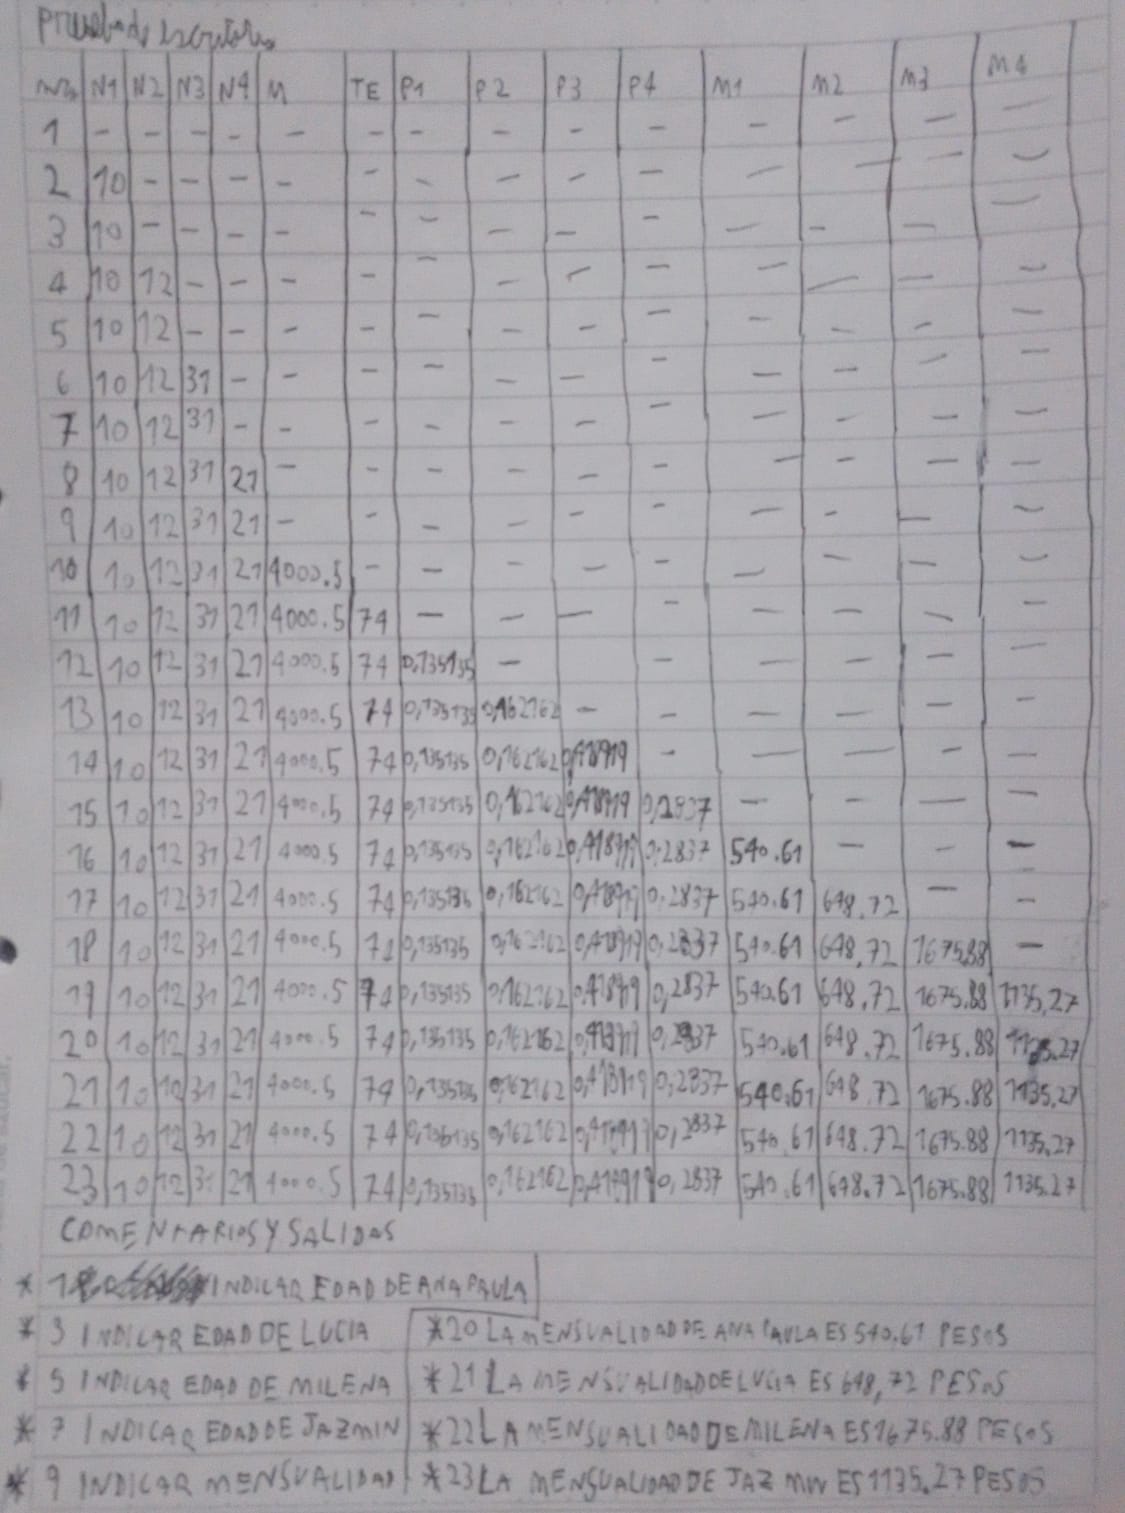 Prueba de escritorio
N1 N2 N3 N4 M TE P1 P2 P3 P4 M1 M2 M3 M4
1 - - - - - - - - - - - - - -
2 10 - - - - - - - - - - - - -
3 10 - - - - - - - - - - - -
4 10 12 - - - - - - - - - - - -
5 10 12 - - - - - - - - - - - -
6 10 12 31 - - - - - - - - - - -
7 10 12 31 - - - - - - - - - - -
8 10 12 31 21 - - - - - - - - - -
9 10 12 31 21 - - - - - - - - - -
10 10 12 31 21 4000.5 - - - - - - - - -
11 10 12 31 21 4000.5 74 - - - - - - - -
12 10 12 31 21 4000.5 74 0,135135 - - - - - -
13 10 12 31 21 4000.5 74 0,135135 0,162162 - - - - - -
14 10 12 31 21 4000.5 74 0,135135 0,162162 0,418919 - - - - -
15 10 12 31 21 4000.5 74 0,135135 0,162162 0,418919 0,2837 - - - -
16 10 12 31 21 4000.5 74 0,135135 0,162162 0,418919 0,2837 540.61 - - -
17 10 12 31 21 4000.5 74 0,135135 0,162162 0,418919 0,2837 540.61 648.72 - -
18 10 12 31 21 4000.5 74 0,135135 0,162162 0,418919 0,2837 540.61 648,72 1675.88 -
19 10 12 31 21 4000.5 74 0,135135 0,162162 0,418919 0,2837 540.61 648,72 1675.88 1135,27
20 10 12 31 21 4000.5 74 0,135135 0,162162 0,418919 0,2837 540.61 648.72 1675.88 1135.27
21 10 10 31 21 4000.5 74 0,135135 0,162162 0,418919 0,2837 540.61 648.72 1675.88 1135,27
22 10 12 31 21 4000.5 74 0,136135 0,162162 0,418919 0,2837 540.61 648.72 1675.88 1135.27
23 10 12 31 21 4000.5 74 0,135135 0,162162 0,418919 0,2837 540.61 648.72 1675.88 1135.27
COMENTARIOS Y SALIDAS
* 1 INDICAR EDAD DE ANA PAULA
* 3 INDICAR EDAD DE LUCIA
*20 LA MENSUALIDAD DE ANA PAULA ES 540.61 PESOS
* 5 INDICAR EDAD DE MILENA
*21 LA MENSUALIDAD DE LUCIA ES 648,72 PESOS
* 7 INDICAR EDAD DE JAZMIN
*22 LA MENSUALIDAD DE MILENA ES 1675.88 PESOS
* 9 INDICAR MENSUALIDAD
*23 LA MENSUALIDAD DE JAZMIN ES 1135.27 PESOS